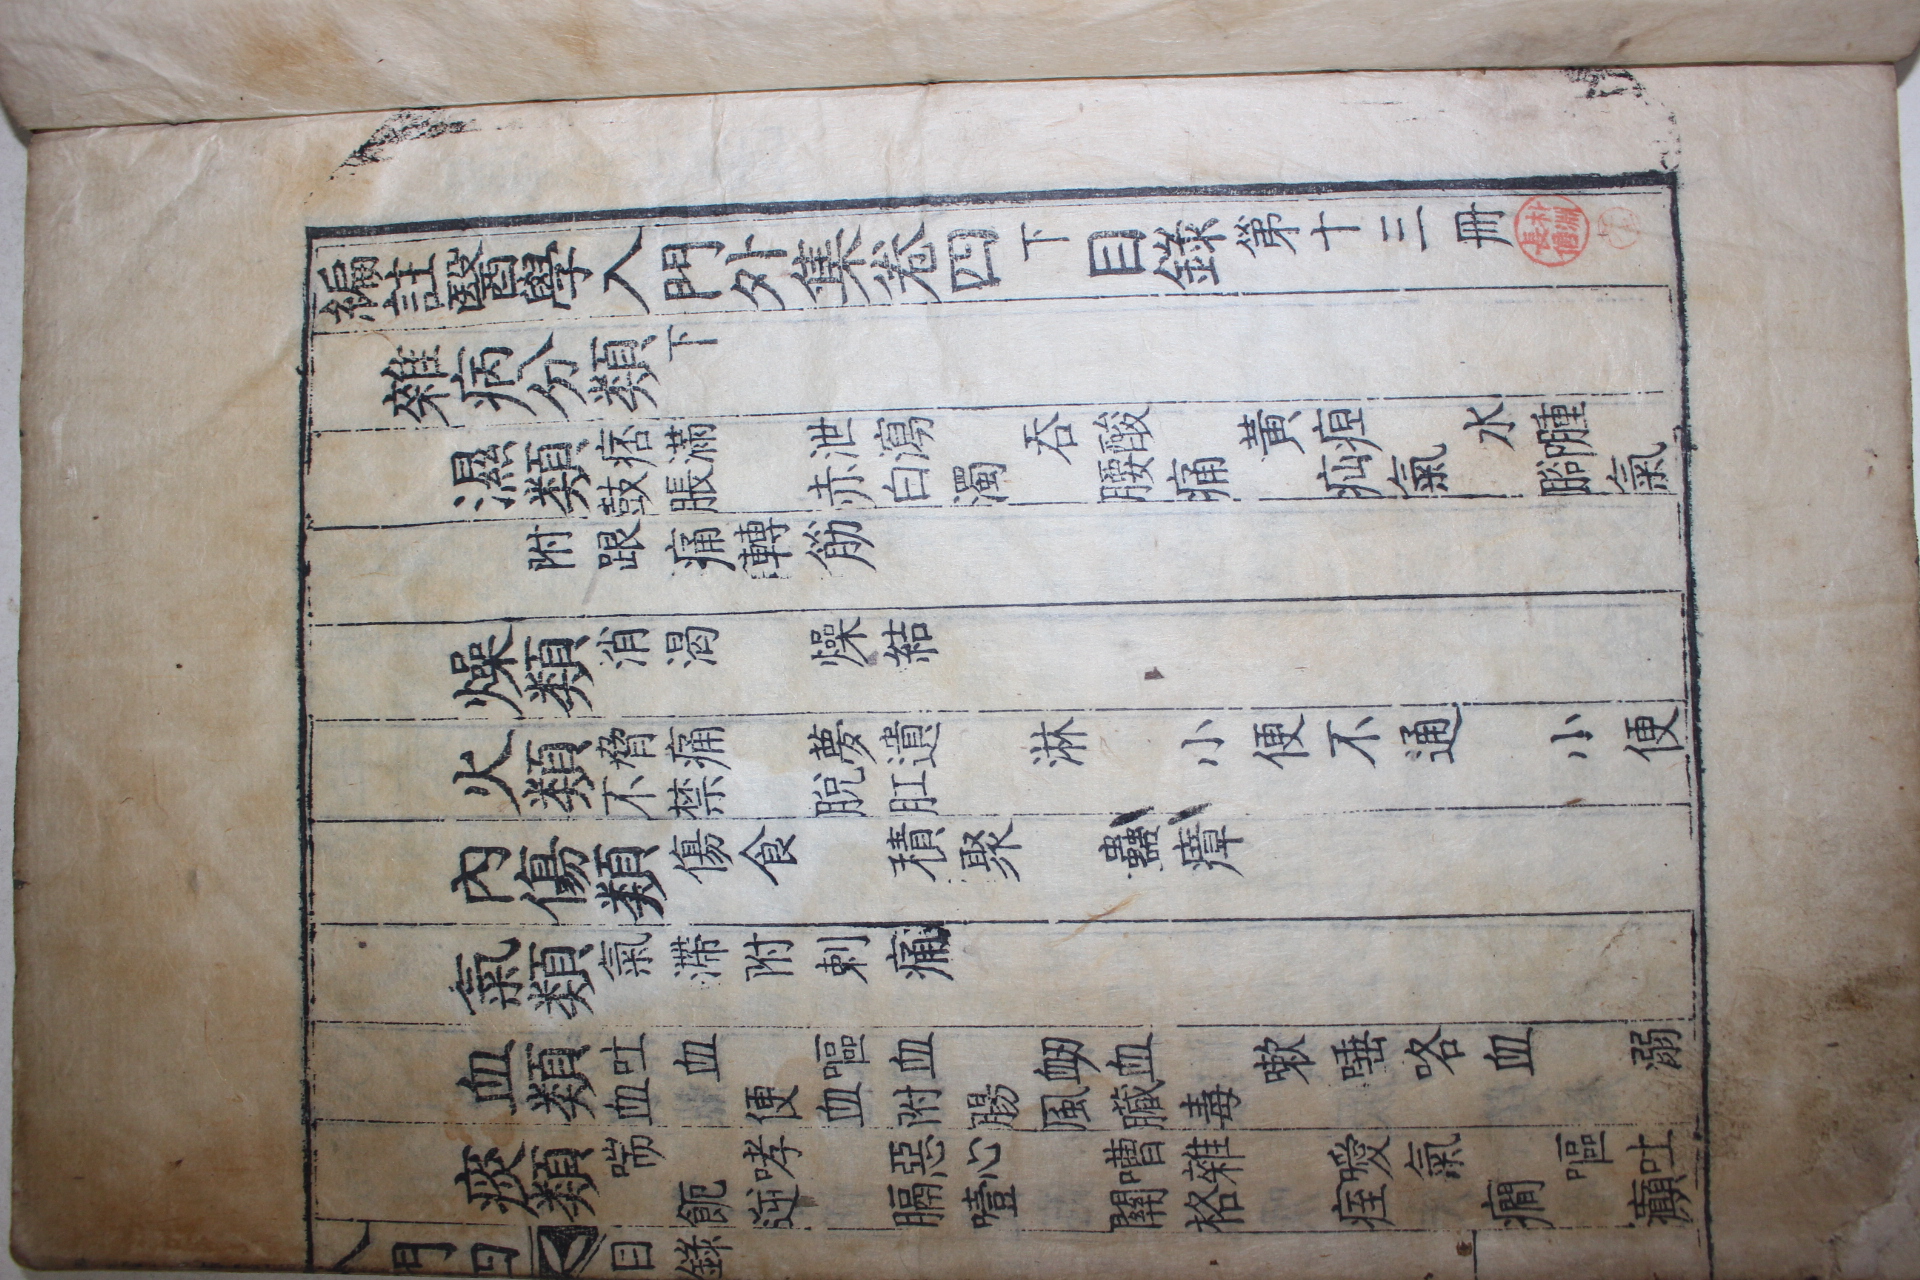 編註醫學入門外集卷四下目錄第十三冊
雜病分類下
濕類 痞滿 泄瀉 吞酸 黃疸 水腫
鼓脹 赤白濁 腰痛 疝氣 腳氣
附跟痛轉筋
燥類 消渴 燥結
火類 脅痛 夢遺 淋 小便不通 小便
不禁 脫肛
內傷類 傷食 積聚 蠱瘴
氣類 氣滯附刺痛
血類 吐血 嘔血 衂血 嗽唾咯血 溺
血 便血附腸風臟毒
痰類 喘 哮 惡心 嘈雜 噯氣 嘔吐
逆 膈噎 關格 痓 癇 癲
入門四 目錄